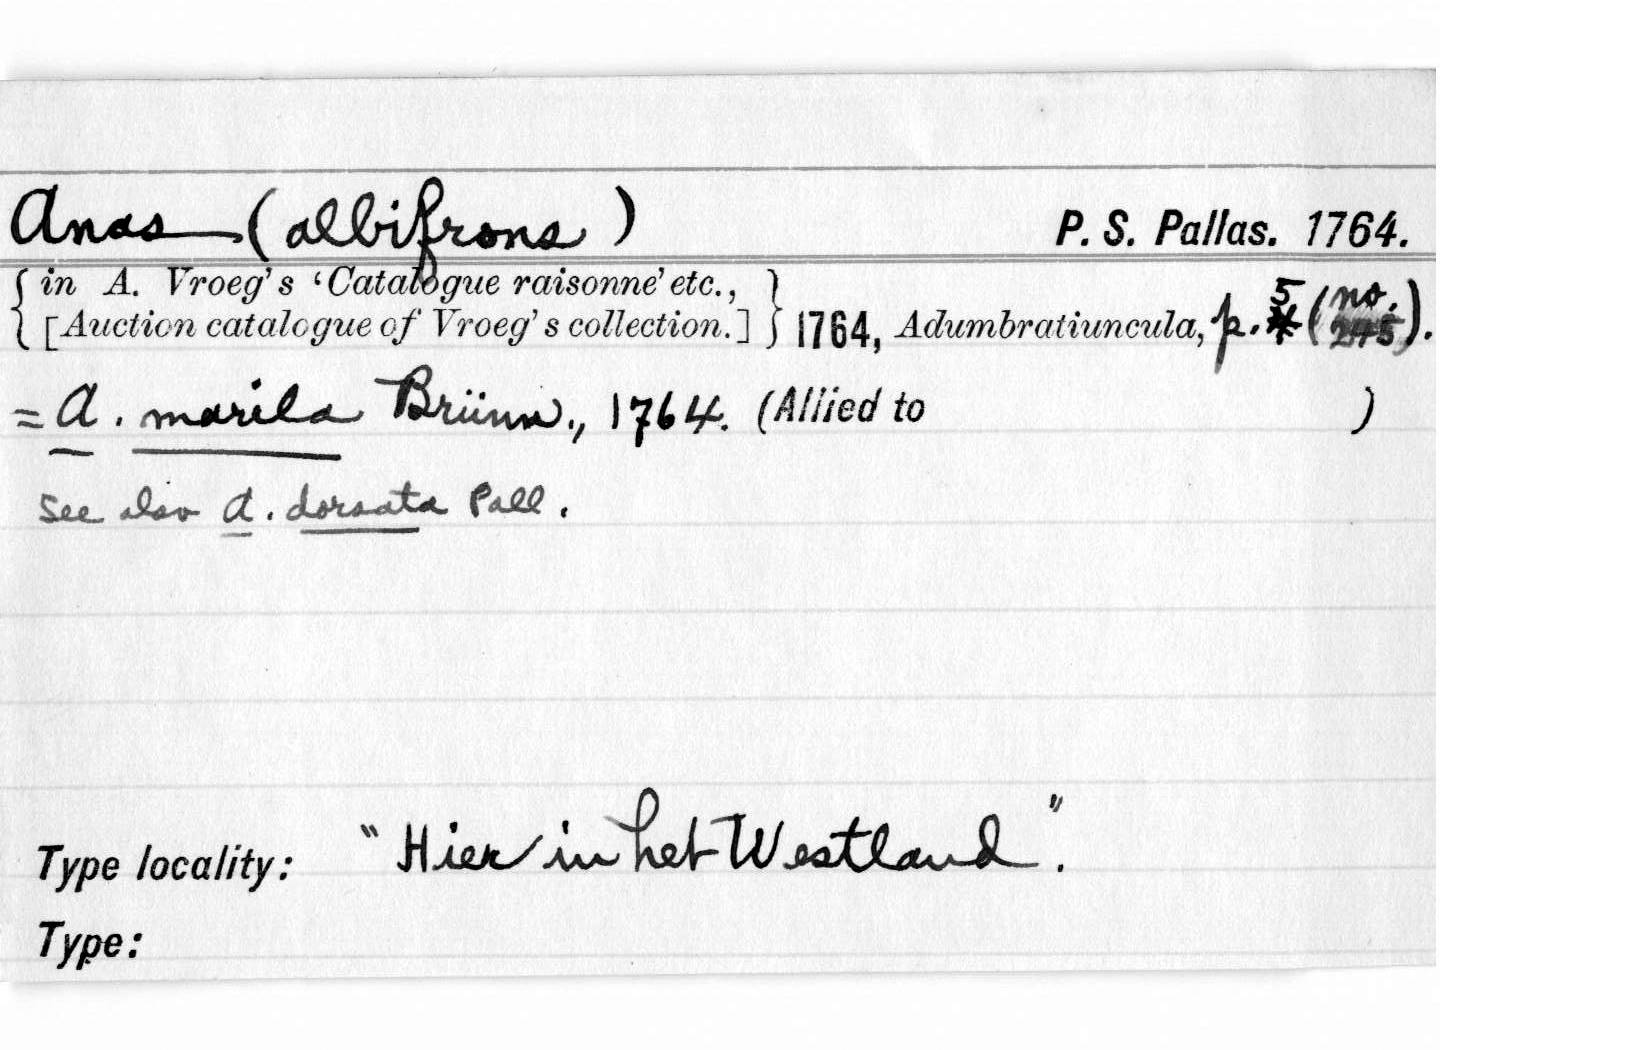 Anas (albifrons) P. S. Pallas. 1764.
{ in A. Vroeg's 'Catalogue raisonne' etc., }
{ [Auction catalogue of Vroeg's collection.] } 1764, Adumbratiuncula, p. 5 (no. 245).
= A. marila Brünn., 1764. (Allied to )
See also A. dorsata Pall.
Type locality: "Hier in het Westland".
Type: